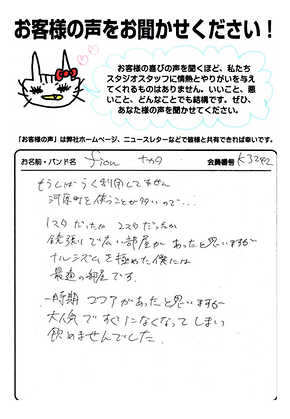 お客様の声をお聞かせください!
お客様の喜びの声を聞くほど、私たち
スタジオスタッフに情熱とやりがいを与え
てくれるものはありません。いいこと、悪
いこと、どんなことでも結構です。ぜひ、
あなた様の声を聞かせてください。
「お客様の声」は弊社ホームページ、ニュースレターなどで皆様と共有できれば幸いです。
お名前・バンド名 fiou ナカタ 会員番号 K3292
もうしばらく利用してません
河原町を使うことが多いので…
1スタだったか 2スタだったか
鏡張りで広い部屋が あったと思いますが
ナルシズムを極めた僕には
最適の部屋です.
一時期 ココアがあったと思いますが
大人気で すぐになくなってしまい
飲めませんでした.